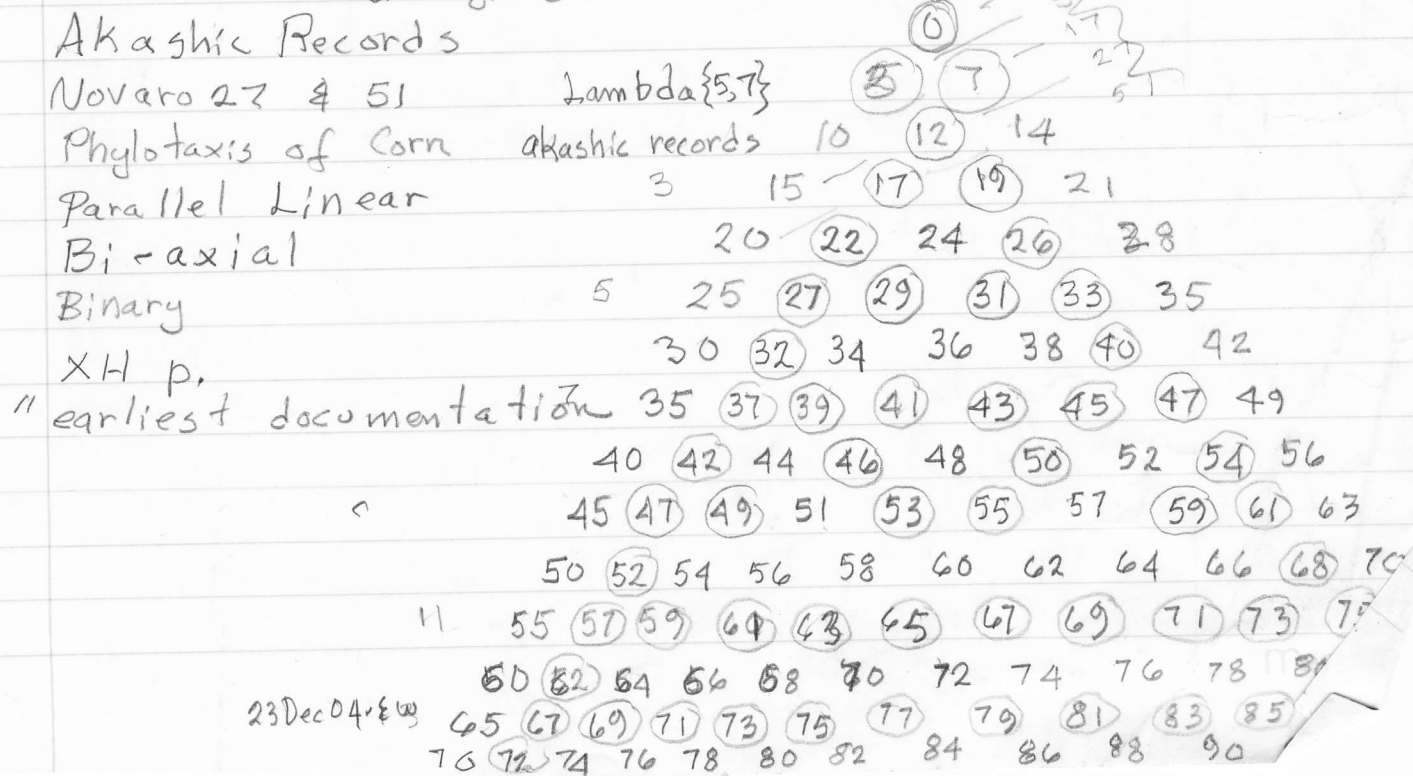 Akashic Records 0
Novaro 27 & 51 Lambda{5,7} 5 7
Phylotaxis of Corn akashic records 10 12 14
Parallel Linear 3 15 17 19 21
Bi-axial 20 22 24 26 28
Binary 5 25 27 29 31 33 35
XH p. 30 32 34 36 38 40 42
" earliest documentation 7 35 37 39 41 43 45 47 49
40 42 44 46 48 50 52 54 56
45 47 49 51 53 55 57 59 61 63
50 52 54 56 58 60 62 64 66 68 70
11 55 57 59 61 63 65 67 69 71 73 75
60 62 64 66 68 70 72 74 76 78
23Dec04 65 67 69 71 73 75 77 79 81 83 85
70 72 74 76 78 80 82 84 86 88 90